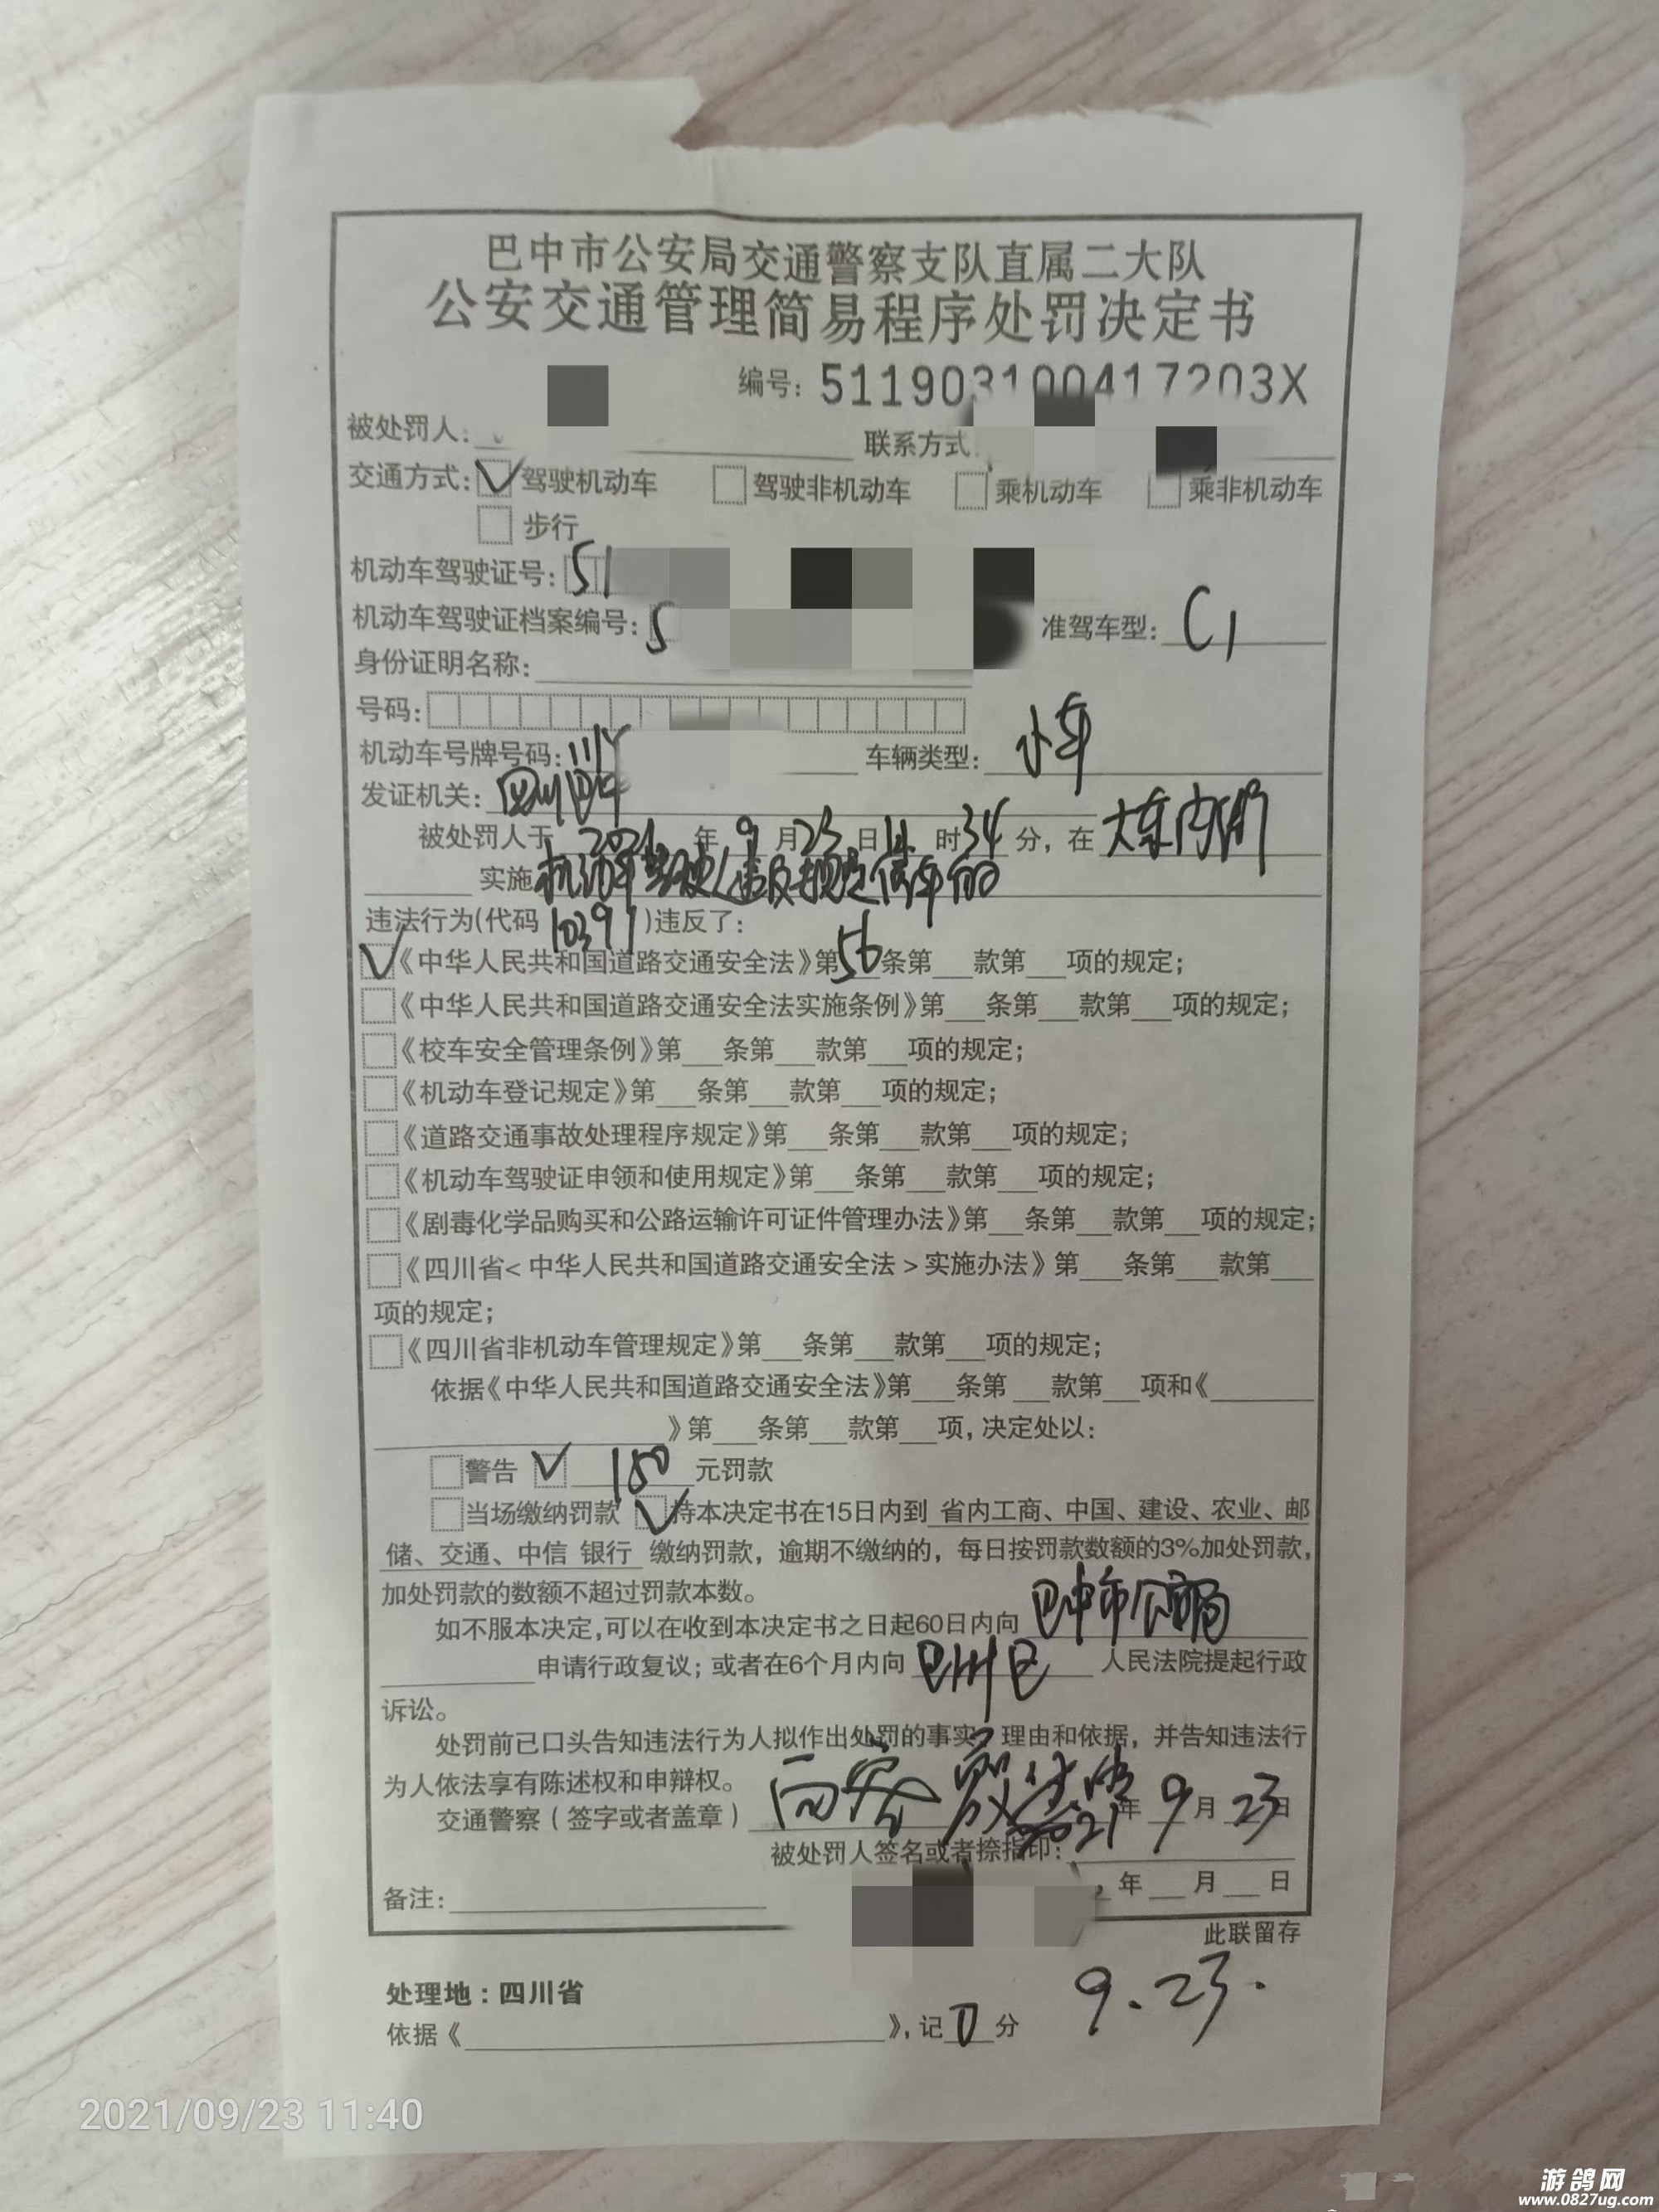 巴中市公安局交通警察支队直属二大队
公安交通管理简易程序处罚决定书
编号：511903100417203X
被处罚人： 联系方式
交通方式：✓驾驶机动车 驾驶非机动车 乘机动车 乘非机动车
步行
机动车驾驶证号：51
机动车驾驶证档案编号：5 准驾车型：C1
身份证明名称：
号码：
机动车号牌号码：川Y 车辆类型：小车
发证机关：四川巴中
被处罚人于2021年9月23日11时34分，在大东门桥
实施机动车驾驶人违反规定停车的
违法行为（代码10391）违反了：
✓《中华人民共和国道路交通安全法》第56条第___款第___项的规定；
《中华人民共和国道路交通安全法实施条例》第___条第___款第___项的规定；
《校车安全管理条例》第___条第___款第___项的规定；
《机动车登记规定》第___条第___款第___项的规定；
《道路交通事故处理程序规定》第___条第___款第___项的规定；
《机动车驾驶证申领和使用规定》第___条第___款第___项的规定；
《剧毒化学品购买和公路运输许可证件管理办法》第___条第___款第___项的规定；
《四川省<中华人民共和国道路交通安全法>实施办法》第___条第___款第___
项的规定；
《四川省非机动车管理规定》第___条第___款第___项的规定；
依据《中华人民共和国道路交通安全法》第___条第___款第___项和《
》第___条第___款第___项，决定处以：
警告 ✓150元罚款
当场缴纳罚款 ✓持本决定书在15日内到 省内工商、中国、建设、农业、邮
储、交通、中信 银行 缴纳罚款，逾期不缴纳的，每日按罚款数额的3%加处罚款，
加处罚款的数额不超过罚款本数。
如不服本决定，可以在收到本决定书之日起60日内向巴中市公安局
申请行政复议；或者在6个月内向巴州区人民法院提起行政
诉讼。
处罚前已口头告知违法行为人拟作出处罚的事实、理由和依据，并告知违法行
为人依法享有陈述权和申辩权。
交通警察（签字或者盖章） 2021年9月23日
被处罚人签名或者捺指印：
备注： 年___月___日
此联留存
处理地：四川省 9.23.
依据《 》，记0分
2021/09/23 11:40
游鸽网
www.0827ug.com